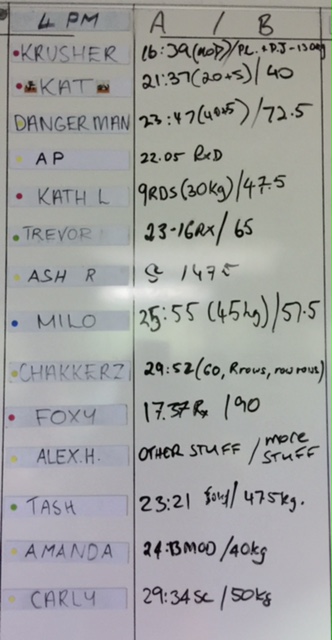 4 PM A / B
KRUSHER 16:39(MOD)/PC. + PJ-130kg
KAT 21:37(20+5)/40
DANGERMAN 23:47(40+5)/72.5
AP 22.05 RxD
KATH L 9RDS(30kg)/47.5
TREVOR 23-16RX/65
ASH R SC /47.5
MILO 25:55 (45kg)/57.5
CHAKKERZ 29:52(60, Rrows,
FOXY 17.37Rx /90
ALEX.H. OTHER STUFF / more STUFF
TASH 23:21 / 47.5kg.
AMANDA 24:13MOD/40kg
CARLY 29:34SC/50kg